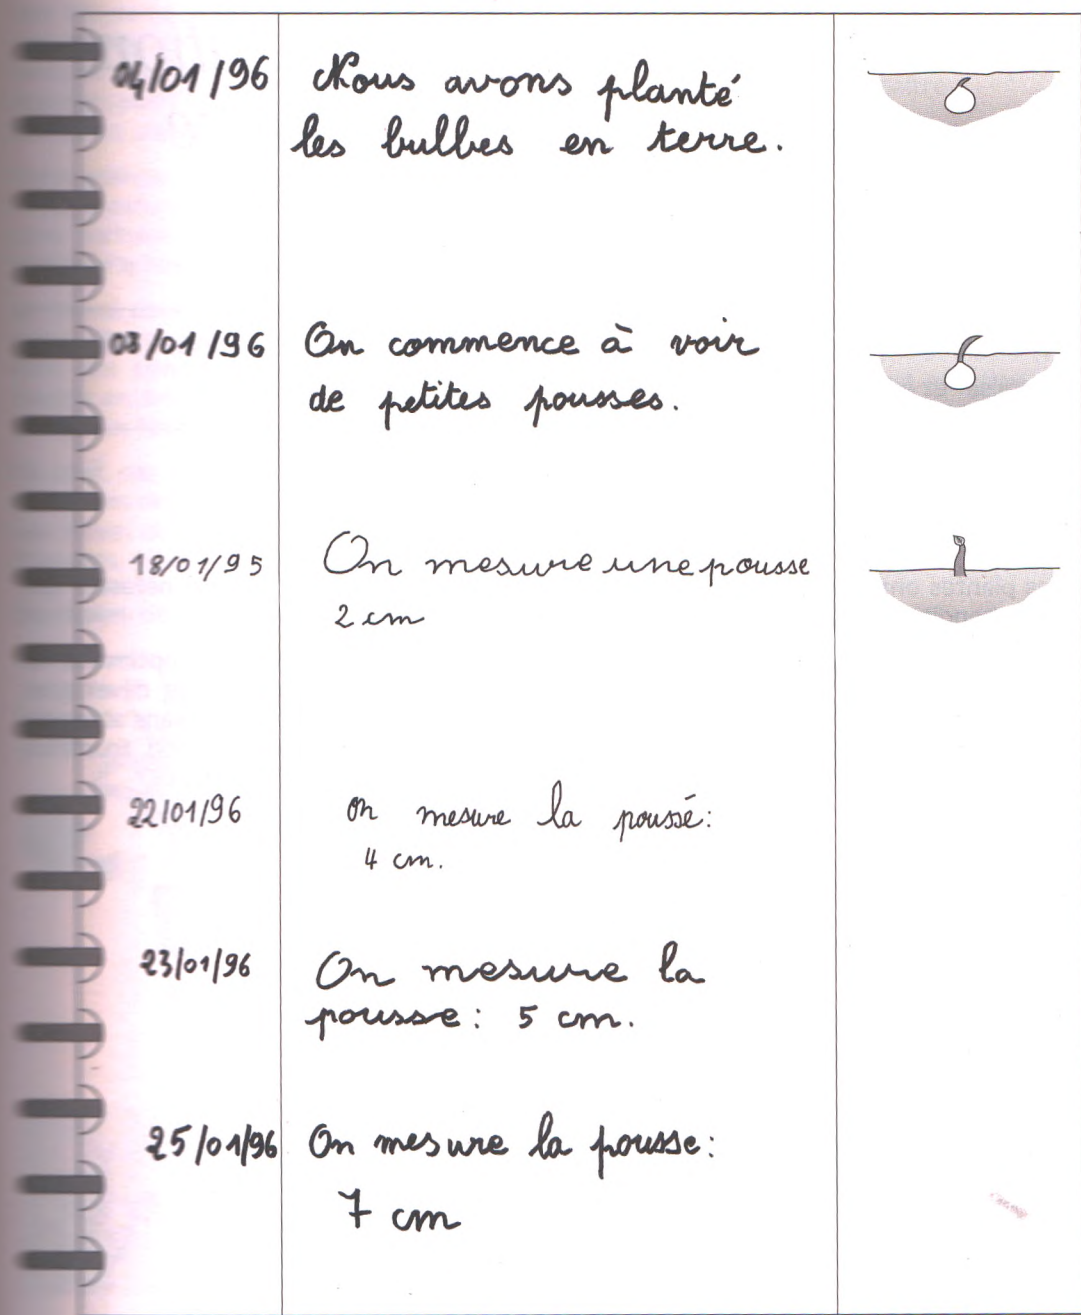 04/01/96 Nous avons planté
les bulbes en terre.
03/01/96 On commence à voir
de petites pousses.
18/01/95 On mesure une pousse
2 cm
22/01/96 on mesure la poussé:
4 cm.
23/01/96 On mesure la
pousse: 5 cm.
25/01/96 On mesure la pousse:
7 cm